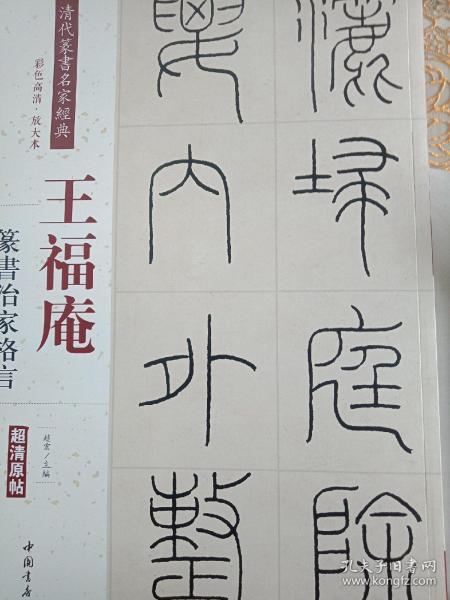 清代篆書名家經典
彩色高清·放大本
王福庵
篆書治家格言
超清原帖
趙宏/主編
中国書店
灑掃庭除
要內外整
孔夫子旧书网